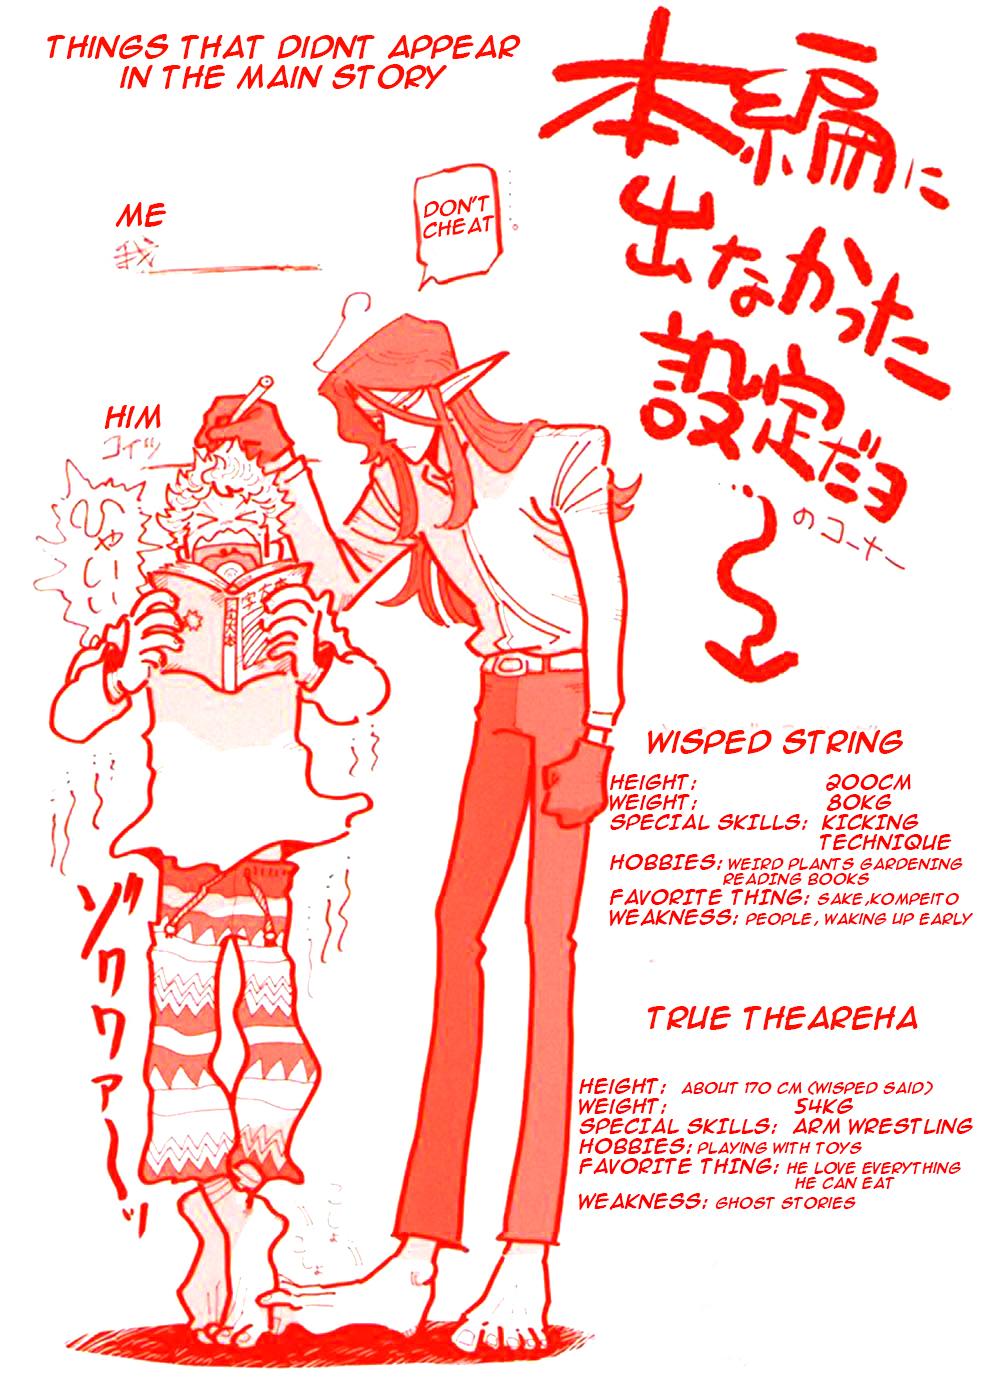 THINGS THAT DIDNT APPEAR
IN THE MAIN STORY
本編に
出なかった
設定だヨ
のコーナー
DON'T
CHEAT
ME
我
HIM
コイツ
ひゃいい
ゾクゾクァ〜ッ
こしょ
こしょ
WISPED STRING
HEIGHT: 200CM
WEIGHT: 80KG
SPECIAL SKILLS: KICKING
TECHNIQUE
HOBBIES: WEIRD PLANTS GARDENING
READING BOOKS
FAVORITE THING: SAKE,KOMPEITO
WEAKNESS: PEOPLE, WAKING UP EARLY
TRUE THEAREHA
HEIGHT: ABOUT 170 CM (WISPED SAID)
WEIGHT: 54KG
SPECIAL SKILLS: ARM WRESTLING
HOBBIES: PLAYING WITH TOYS
FAVORITE THING: HE LOVE EVERYTHING
HE CAN EAT
WEAKNESS: GHOST STORIES